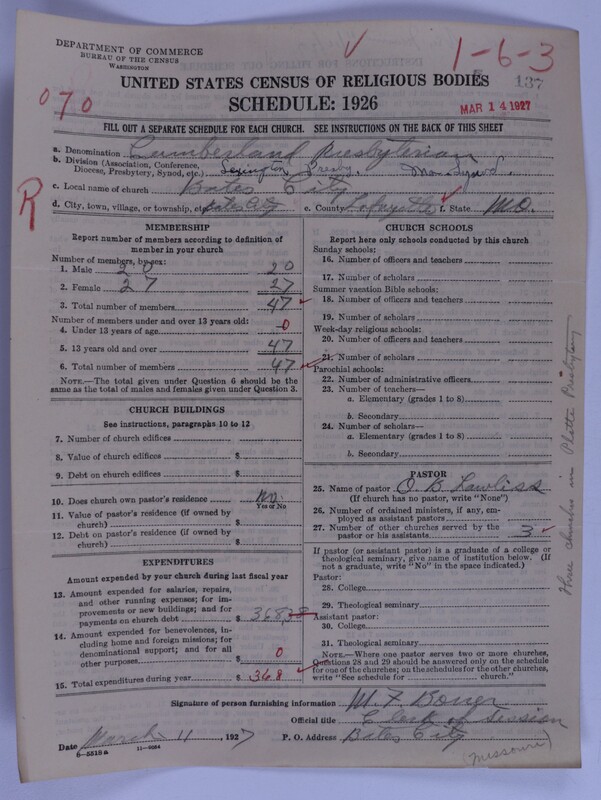 DEPARTMENT OF COMMERCE
BUREAU OF THE CENSUS
WASHINGTON
1-6-3
137
UNITED STATES CENSUS OF RELIGIOUS BODIES
SCHEDULE: 1926
MAR 14 1927
070
FILL OUT A SEPARATE SCHEDULE FOR EACH CHURCH. SEE INSTRUCTIONS ON THE BACK OF THIS SHEET
a. Denomination Cumberland Presbyterian
b. Division (Association, Conference, Diocese, Presbytery, Synod, etc.) Lexington Presby Mo. Synod.
R
c. Local name of church Bates City
d. City, town, village, or township, etc. Bates City e. County Lafayette f. State MO.
MEMBERSHIP
Report number of members according to definition of member in your church
Number of members, by sex:
1. Male 20 20
2. Female 27 27
3. Total number of members 47
Number of members under and over 13 years old:
4. Under 13 years of age 0
5. 13 years old and over 47
6. Total number of members 47
NOTE.—The total given under Question 6 should be the same as the total of males and females given under Question 3.
CHURCH BUILDINGS
See instructions, paragraphs 10 to 12
7. Number of church edifices
8. Value of church edifices $
9. Debt on church edifices $
10. Does church own pastor's residence No.
Yes or No
11. Value of pastor's residence (if owned by church) $
12. Debt on pastor's residence (if owned by church) $
EXPENDITURES
Amount expended by your church during last fiscal year
13. Amount expended for salaries, repairs, and other running expenses; for improvements or new buildings; and for payments on church debt $ 368,38
14. Amount expended for benevolences, including home and foreign missions; for denominational support; and for all other purposes $ 0
15. Total expenditures during year $ 368
CHURCH SCHOOLS
Report here only schools conducted by this church
Sunday schools:
16. Number of officers and teachers
17. Number of scholars
Summer vacation Bible schools:
18. Number of officers and teachers
19. Number of scholars
Week-day religious schools:
20. Number of officers and teachers
21. Number of scholars
Parochial schools:
22. Number of administrative officers
23. Number of teachers—
a. Elementary (grades 1 to 8)
b. Secondary
24. Number of scholars—
a. Elementary (grades 1 to 8)
b. Secondary
PASTOR
25. Name of pastor O. B. Lawliss
(If church has no pastor, write "None")
26. Number of ordained ministers, if any, employed as assistant pastors
27. Number of other churches served by the pastor or his assistants 3
If pastor (or assistant pastor) is a graduate of a college or theological seminary, give name of institution below. (If not a graduate, write "No" in the space indicated.)
Pastor:
28. College
29. Theological seminary
Assistant pastor:
30. College
31. Theological seminary
NOTE.—Where one pastor serves two or more churches, Questions 28 and 29 should be answered only on the schedule for one of the churches; on the schedules for the other churches, write "See schedule for church."
three churches in Platte Presbytery
Signature of person furnishing information M. F.
Official title Clerk of Session
Date March 11, 1927 P. O. Address Bates City
(Missouri)
6-5518a 11-9084